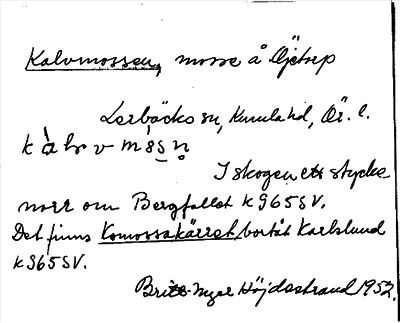 Kalvmossen, mosse å Öjetorp
Lerbäcks sn, Kumla hd, Ör. l.
I skogen ett stycke
norr om Bergfallet k 965 SV.
Det finns Komossakärret bortåt Karlslund
k 965 SV.
Britt-Inger Höjdestrand 1952.